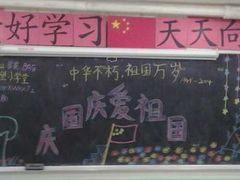 好学习 天天向
中华不朽，祖国万岁
1949-2009
庆国庆爱祖国